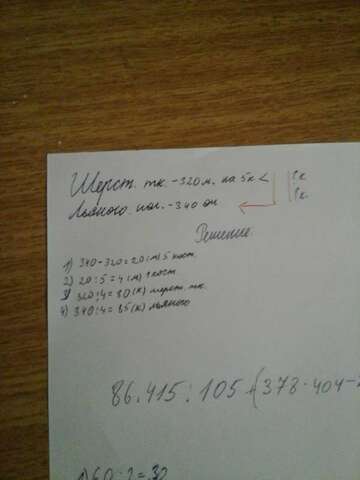 Шерст. тк. - 320 м. на 5к < ? к
Льяного. - 340 ? к.
Решение.
1) 340-320=20(м) 5 кост.
2) 20:5=4(м) 1 кост.
3) 320:4=80(к) шерст. тк.
4) 340:4=85(к) льяного
86.415:105+(378·404-
1) 60:2=30